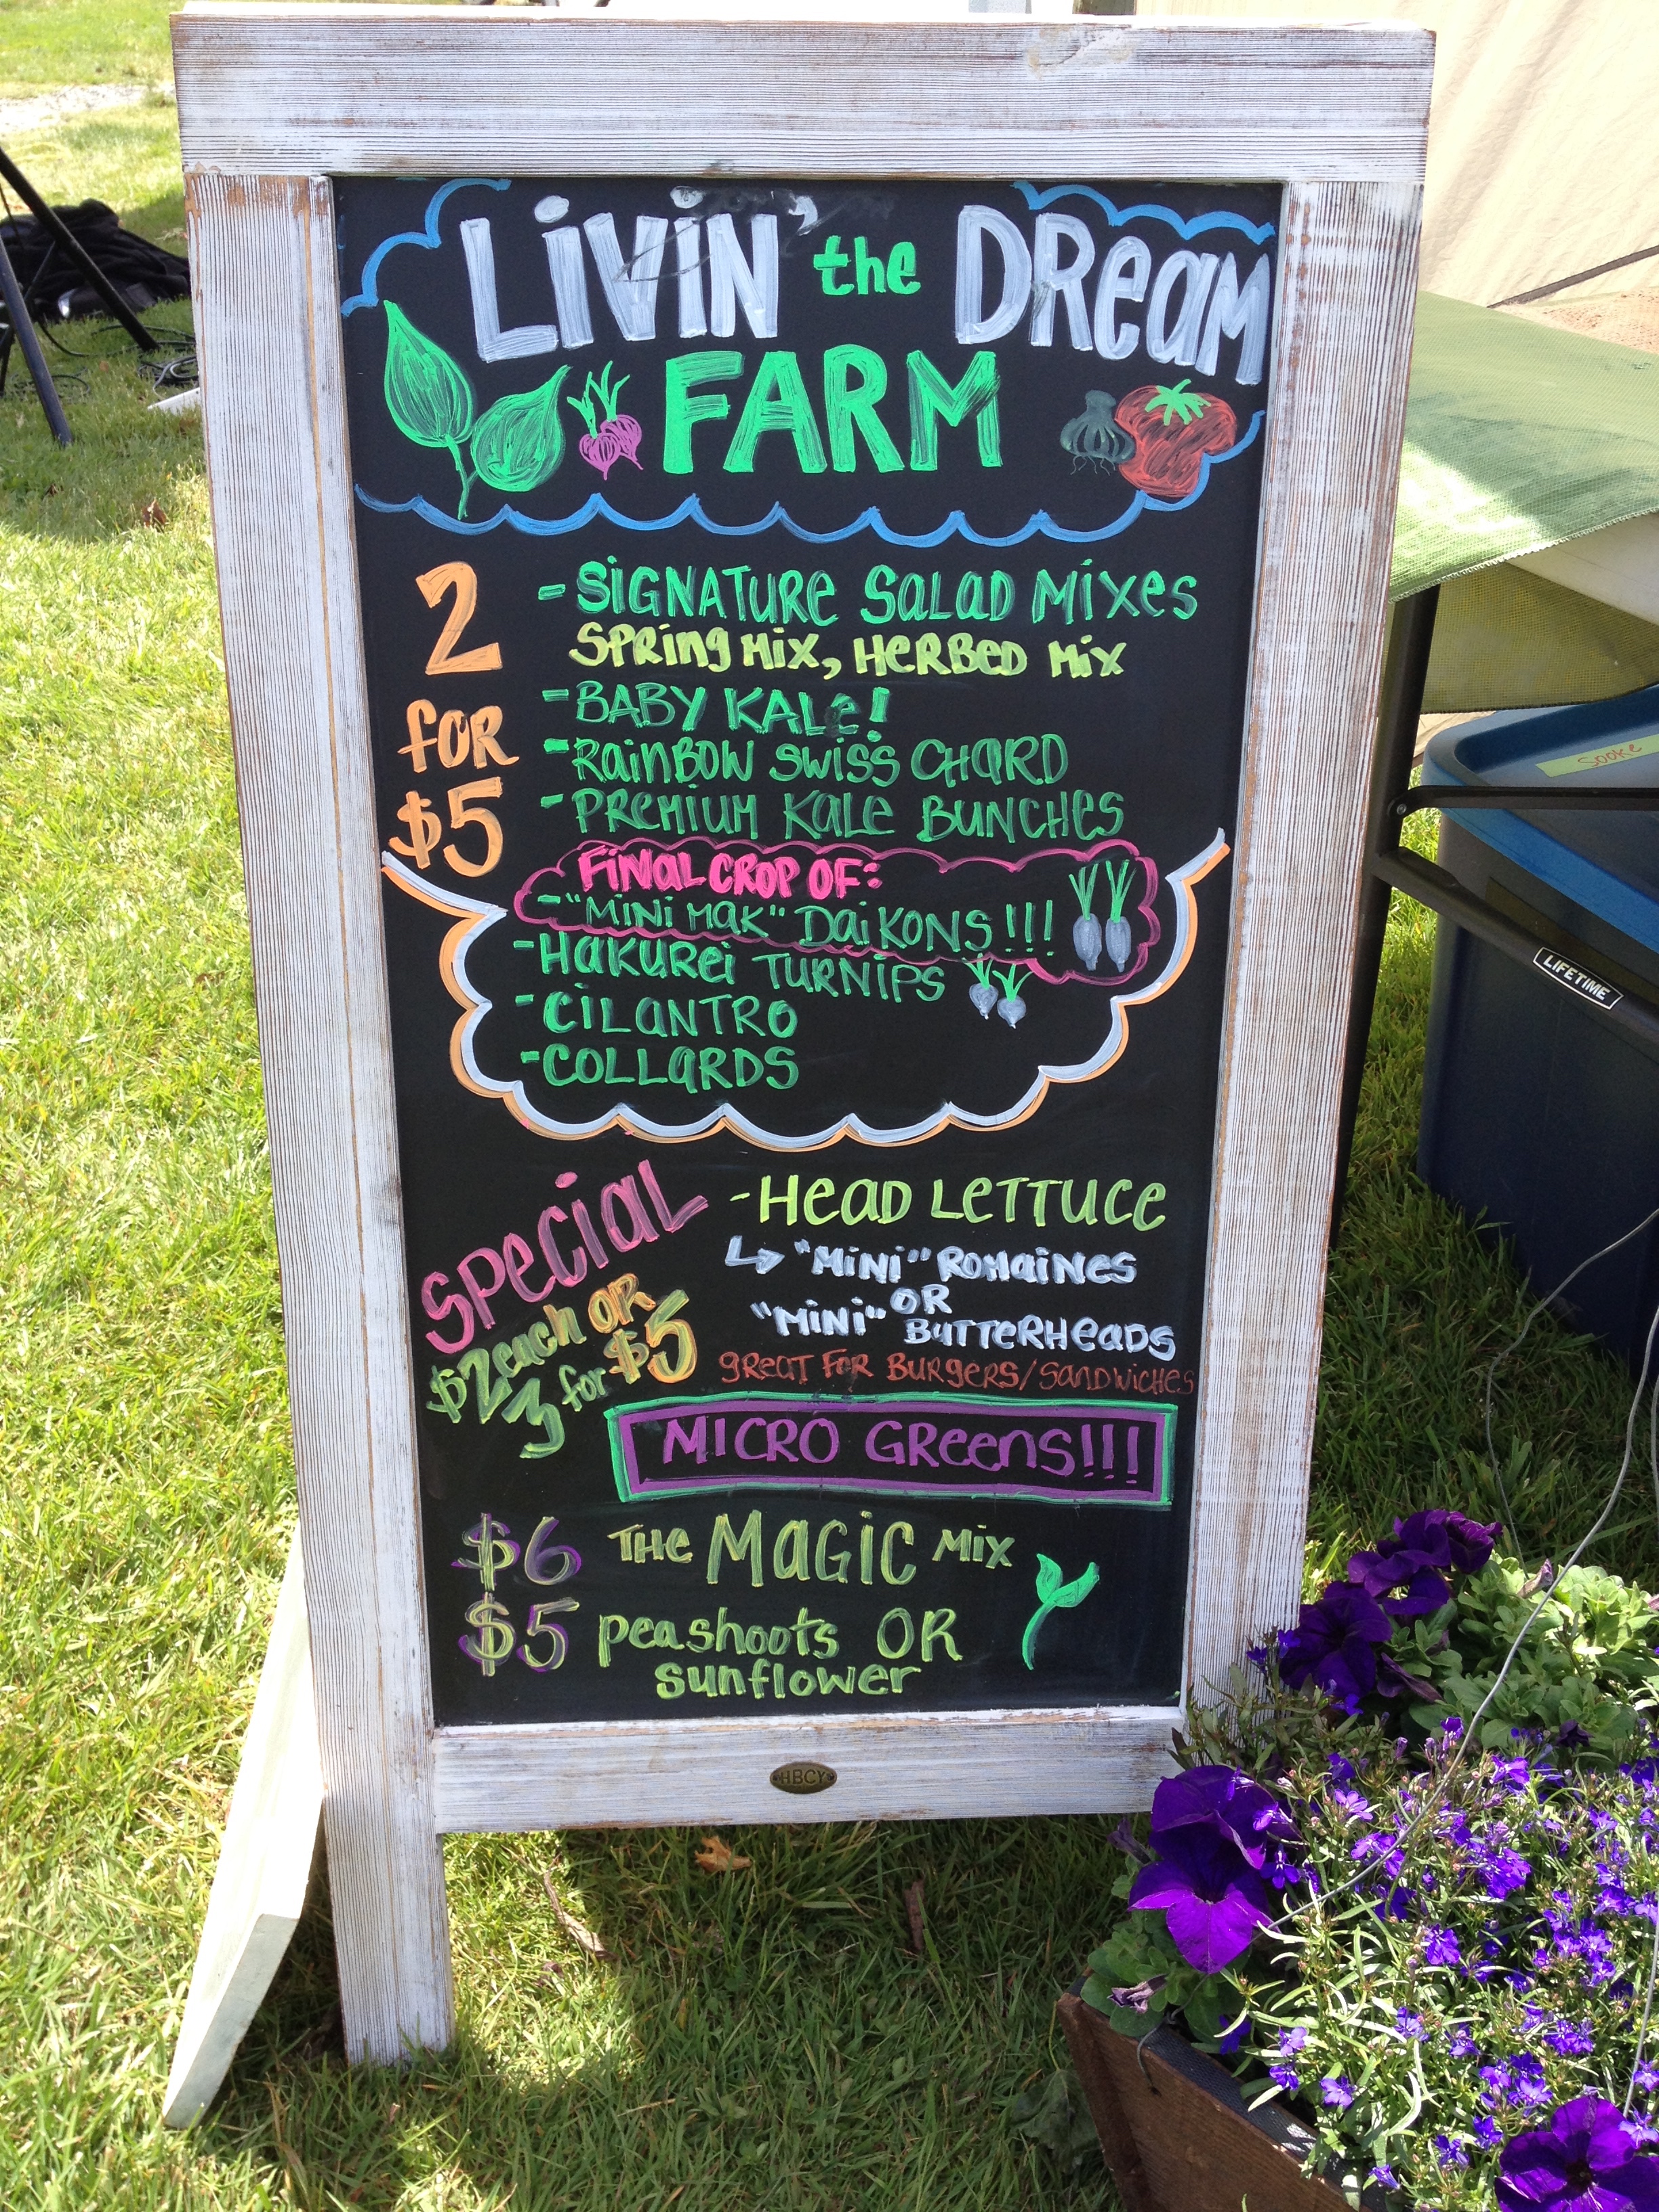 LiViN' the DReaM
FARM
2 for $5
- SiGNATURe SaLaD MiXes
SPRing MiX, HeRBeD MiX
- BABY KALe!
- RainBOW SWiSS CHaRD
- PReMiUM Kale BUNCHes
FiNaL CROP OF:
- "MiNi MaK" DaiKONS!!!
- HaKURei TURNiPS
- CiLaNTRO
- COLLaRDS
SPeCiaL
$2 each OR
3 for $5
- HeaD LeTTUCe
↳ "MiNi" ROMaiNeS
OR
"MiNi" BUTTeRHeaDS
gReaT FOR BURgeRS/SaNDWiCHeS
MICRO GReens!!!
$6 THe MaGiC MiX
$5 pea shoots OR
sunflower
HBCY
Sooke
LIFETIME